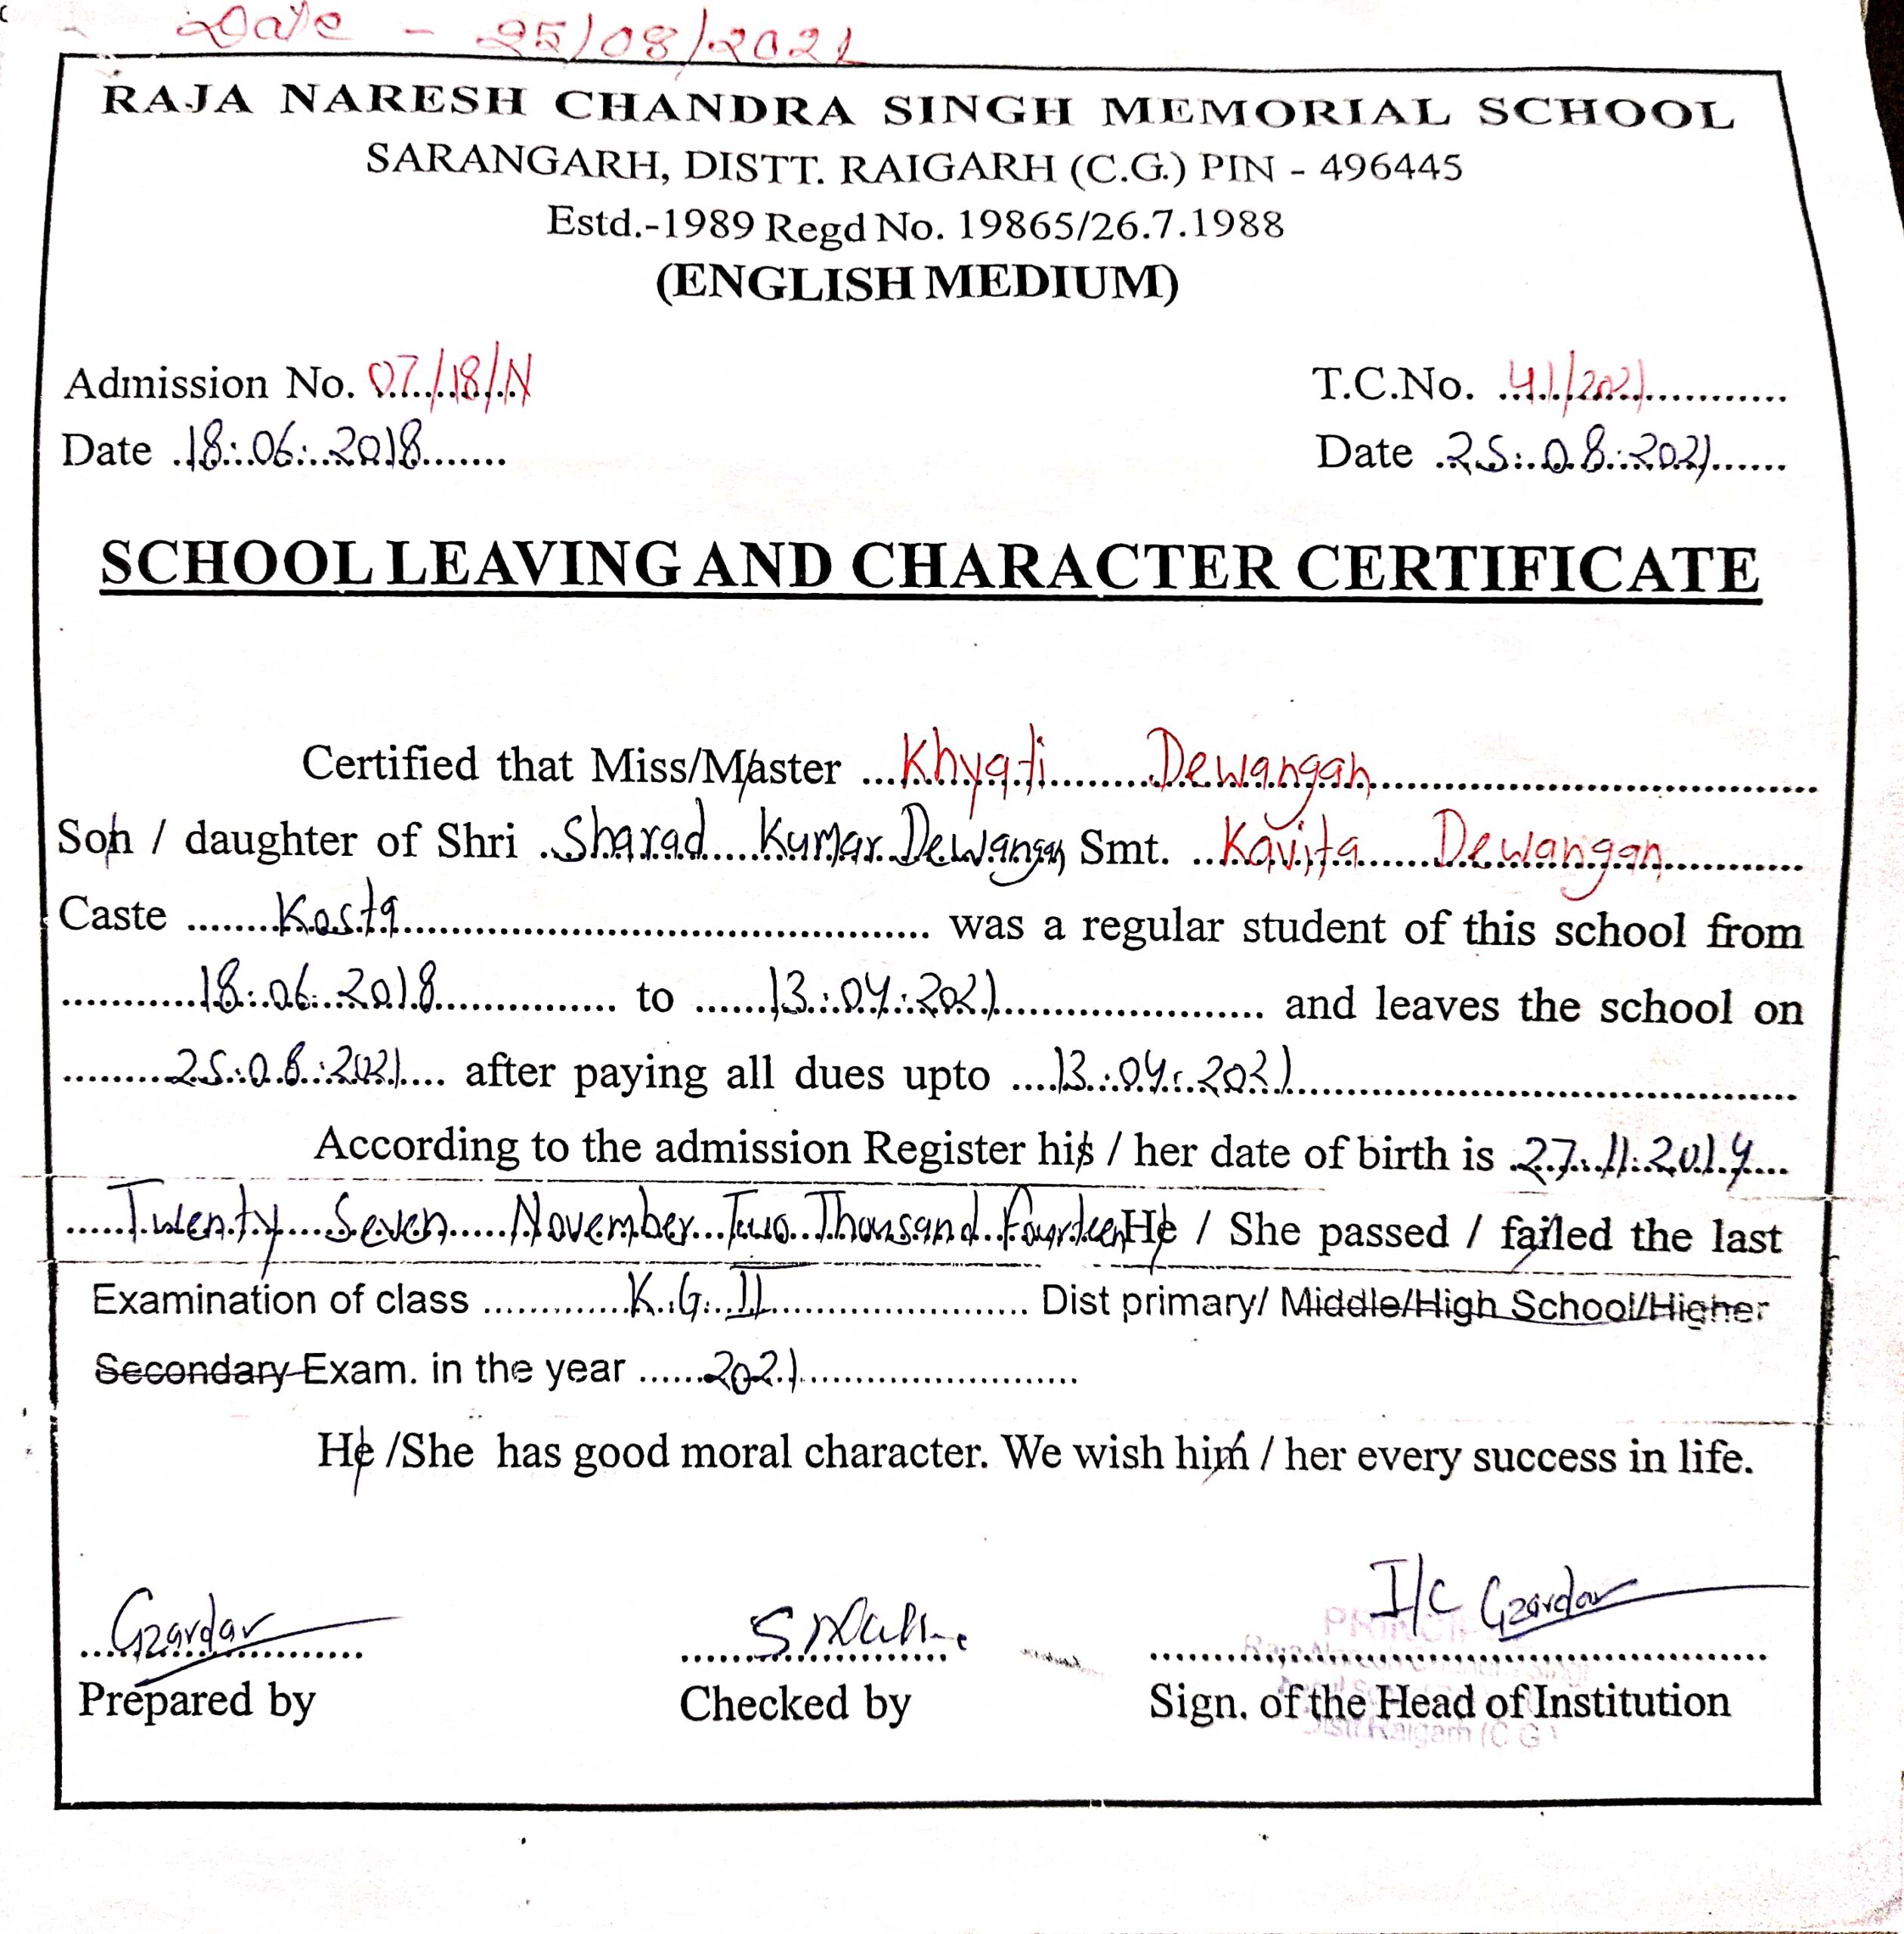 Date - 25/08/2021
RAJA NARESH CHANDRA SINGH MEMORIAL SCHOOL
SARANGARH, DISTT. RAIGARH (C.G.) PIN - 496445
Estd.-1989 Regd No. 19865/26.7.1988
(ENGLISH MEDIUM)
Admission No. 07/18/N T.C.No. 41/2021
Date 18.06.2018 Date 25.08.2021
SCHOOL LEAVING AND CHARACTER CERTIFICATE
Certified that Miss/Master Khyati Dewangan
Son / daughter of Shri Sharad Kumar Dewangan Smt. Kavita Dewangan
Caste Kosta was a regular student of this school from
18.06.2018 to 13.04.2021 and leaves the school on
25.08.2021 after paying all dues upto 13.04.2021
According to the admission Register his / her date of birth is 27.11.2014
Twenty Seven November Two Thousand Fourteen He / She passed / failed the last
Examination of class K.G. II Dist primary/ Middle/High School/Higher
Secondary Exam. in the year 2021
He /She has good moral character. We wish him / her every success in life.
I/C
Prepared by Checked by Sign. of the Head of Institution
Distt Raigarh (C G)